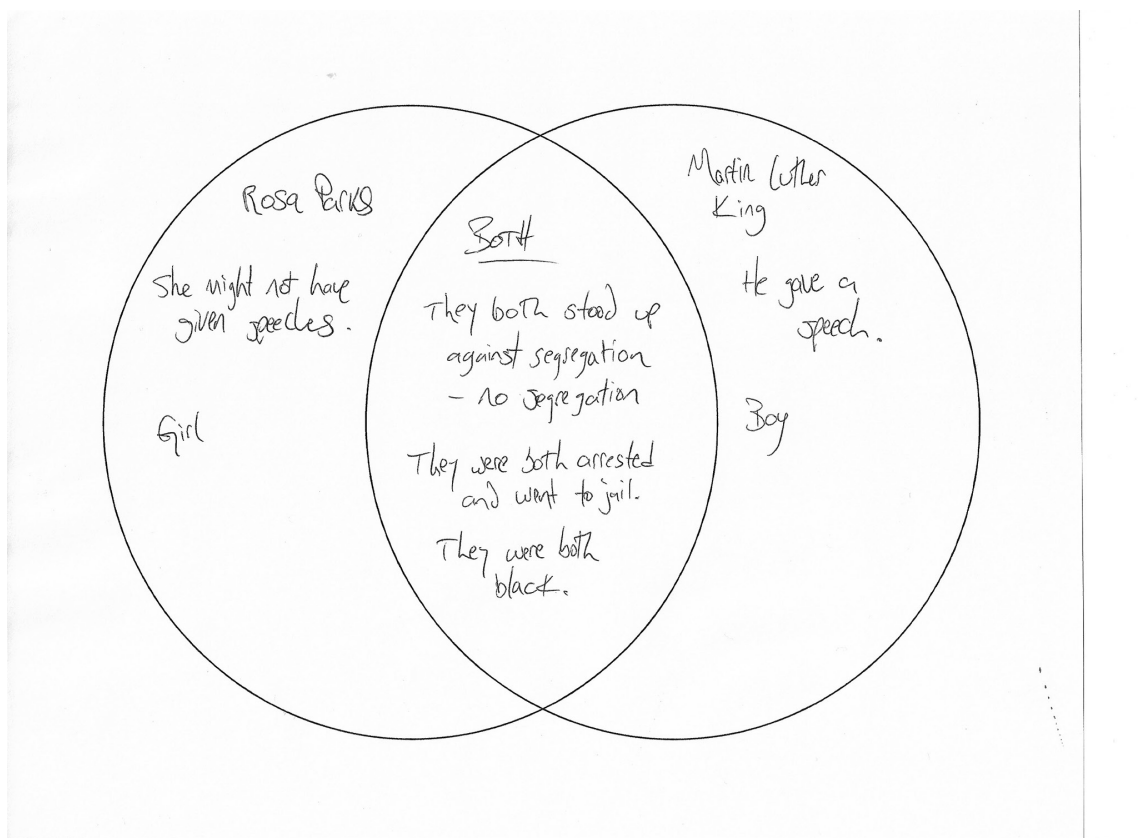 Rosa Parks
She might not have
given speeches.
Girl
BOTH
They both stood up
against segregation
- no segregation
They were both arrested
and went to jail.
They were both
black.
Martin Luther
King
He gave a
speech.
Boy